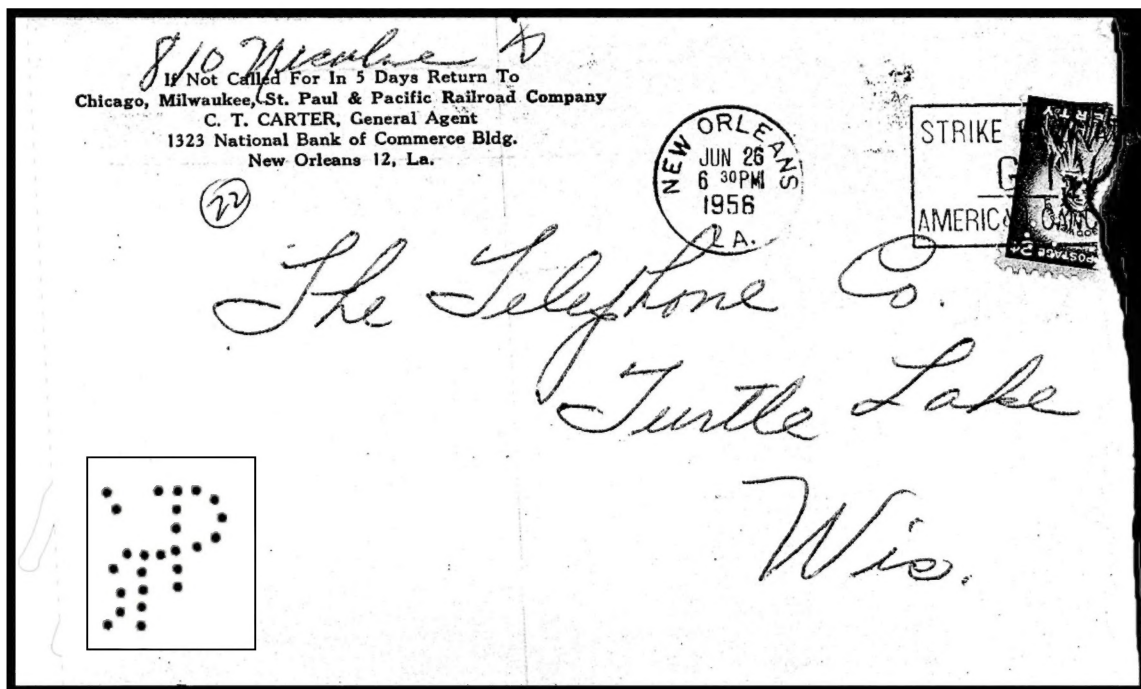 810
If Not Called For In 5 Days Return To
Chicago, Milwaukee, St. Paul & Pacific Railroad Company
C. T. CARTER, General Agent
1323 National Bank of Commerce Bldg.
New Orleans 12, La.
22
NEW ORLEANS
JUN 26
6 30PM
1956
LA.
STRIKE
G
AMERIC
POSTAGE
The Telephone Co.
Turtle Lake
Wis.